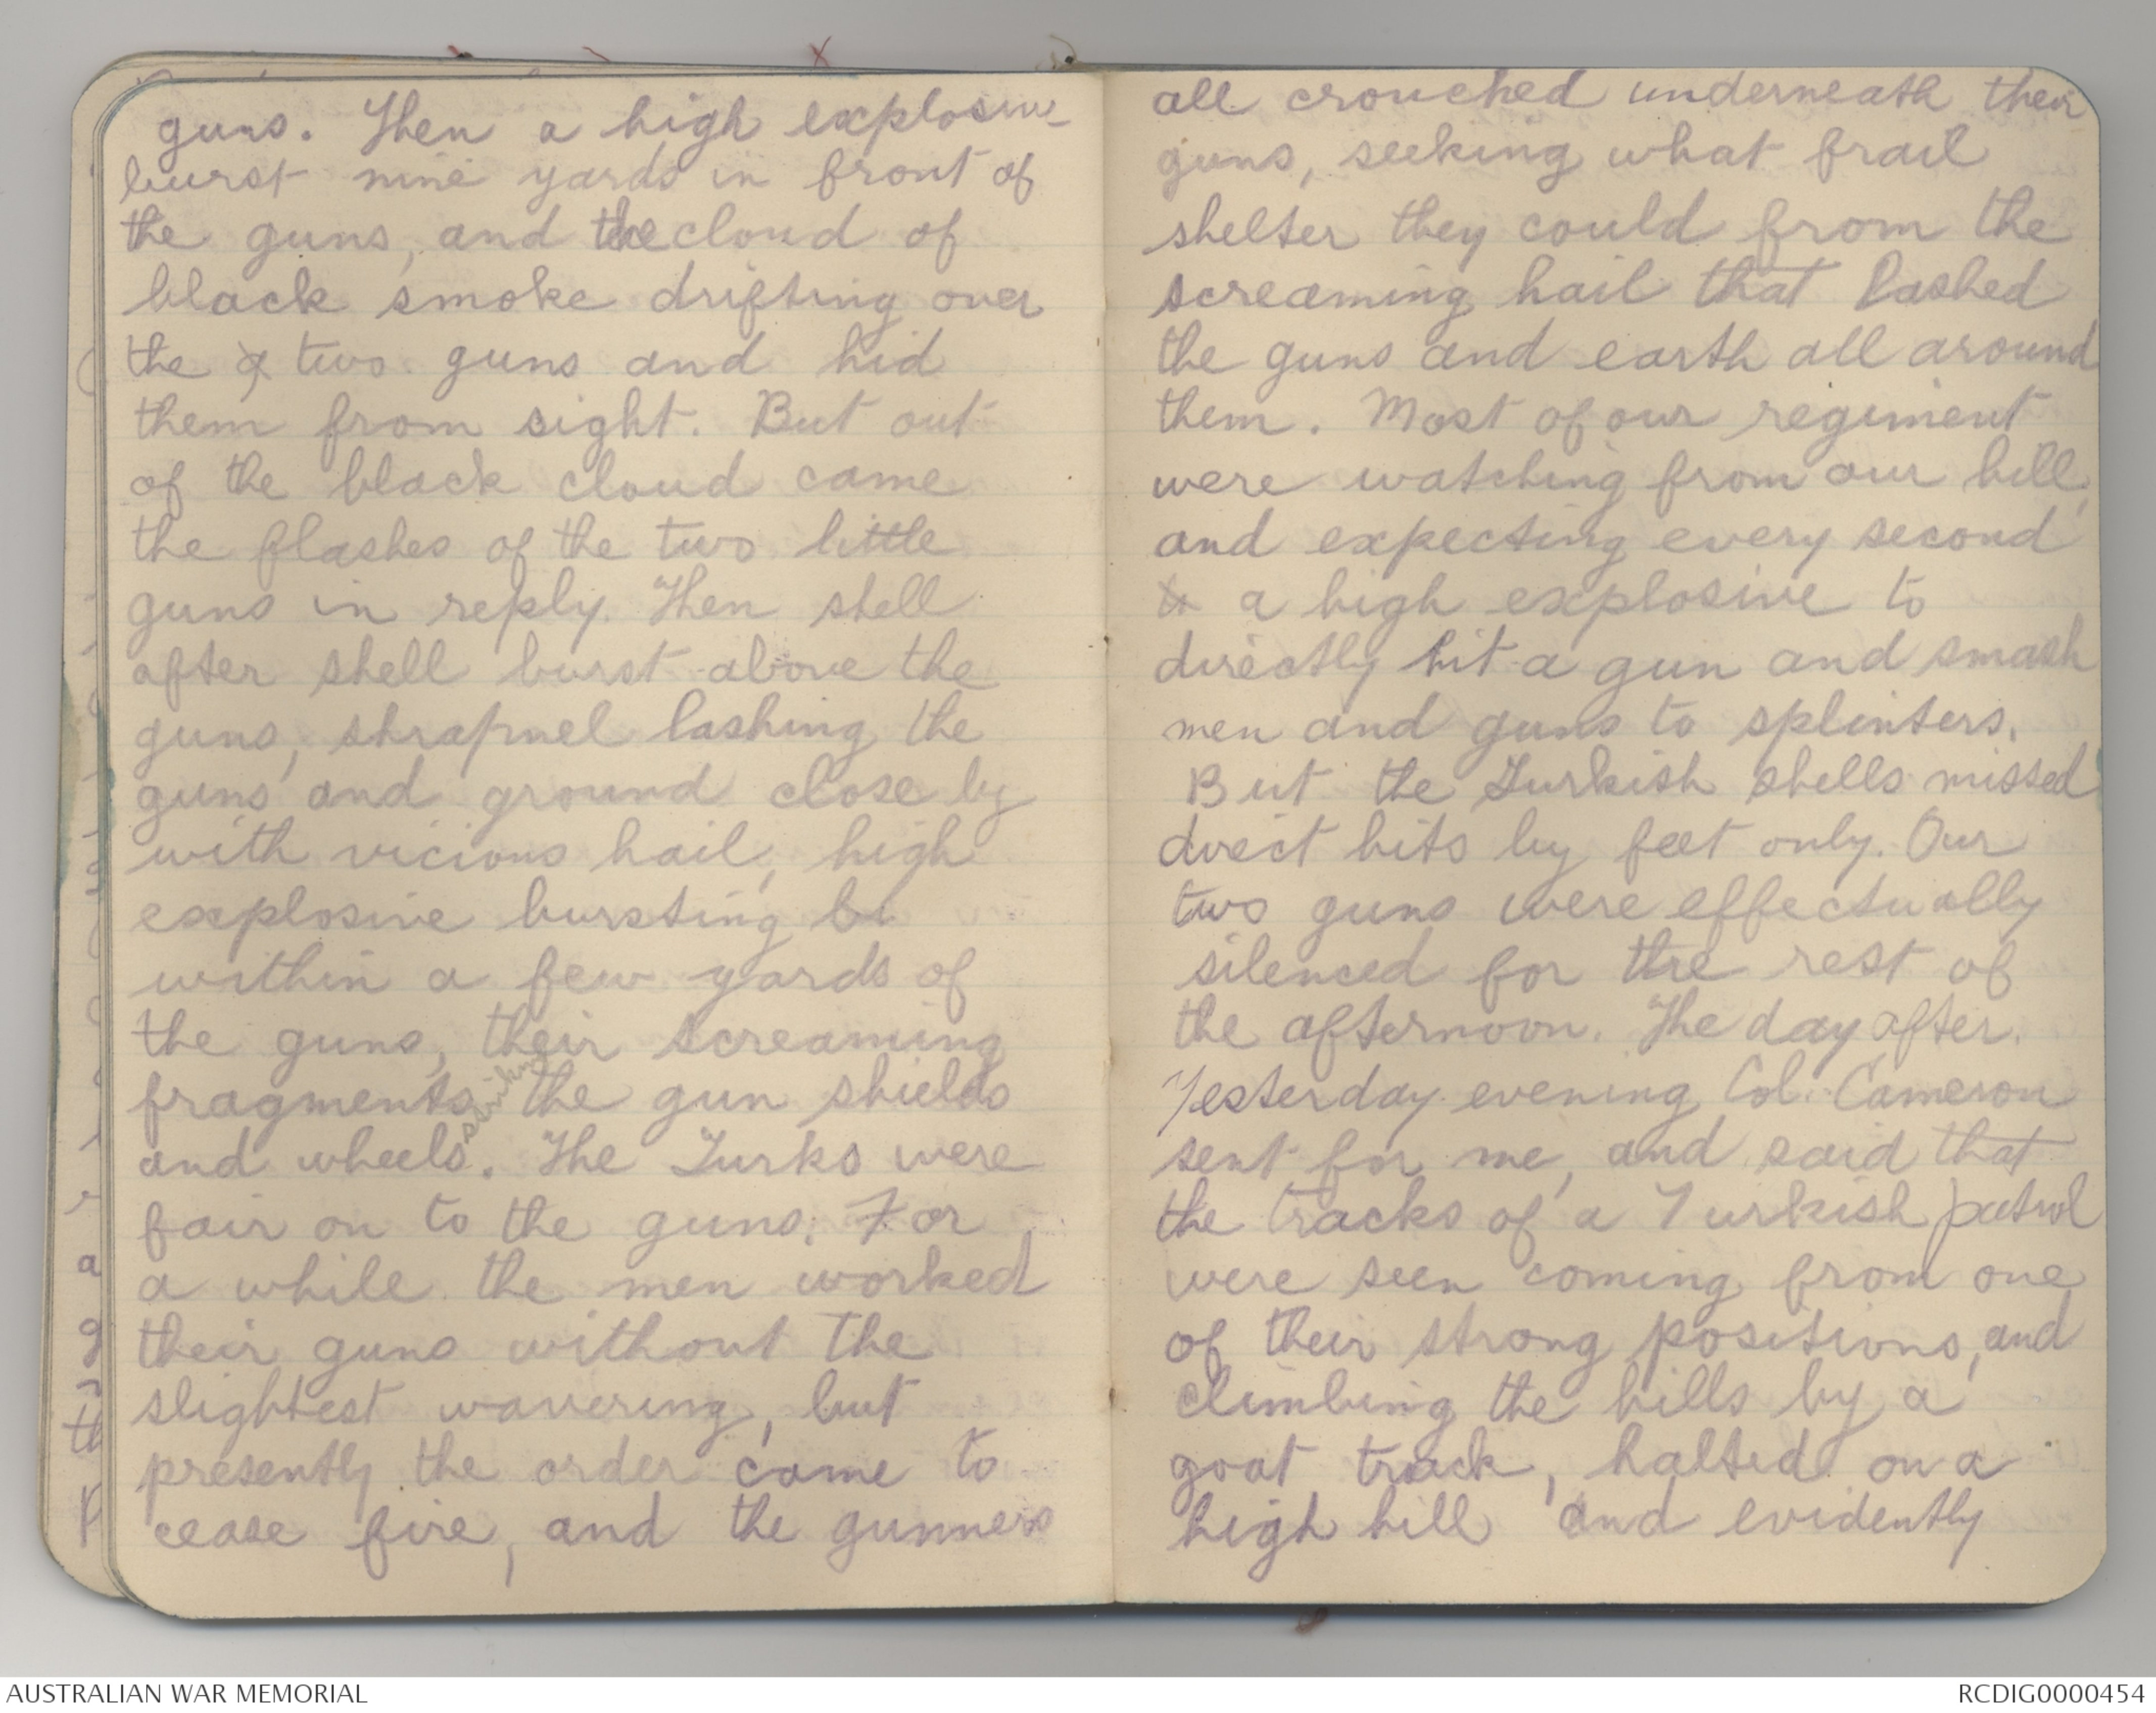 guns. Then a high explosive
burst nine yards in front of
the guns, and the cloud of
black smoke drifting over
the two guns and hid
them from sight. But out
of the black cloud came
the flashes of the two little
guns in reply. Then shell
after shell burst above the
guns, shrapnel lashing the
guns and ground close by
with vicious hail, high
explosive bursting bi
within a few yards of
the guns, their screaming
fragments striking the gun shields
and wheels. The Turks were
fair on to the guns. For
a while the men worked
their guns without the
slightest wavering, but
presently the order came to
cease fire, and the gunners
all crouched underneath their
guns, seeking what frail
shelter they could from the
screaming hail that lashed
the guns and earth all around
them. Most of our regiment
were watching from our hill,
and expecting every second
to a high explosive to
directly hit a gun and smash
men and guns to splinters.
But the Turkish shells missed
direct hits by feet only. Our
two guns were effectually
silenced for the rest of
the afternoon. The day after.
Yesterday evening Col. Cameron
sent for me, and said that
the tracks of a Turkish patrol
were seen coming from one
of their strong positions, and
climbing the hills by a
goat track, halted on a
high hill and evidently
AUSTRALIAN WAR MEMORIAL
RCDIG0000454